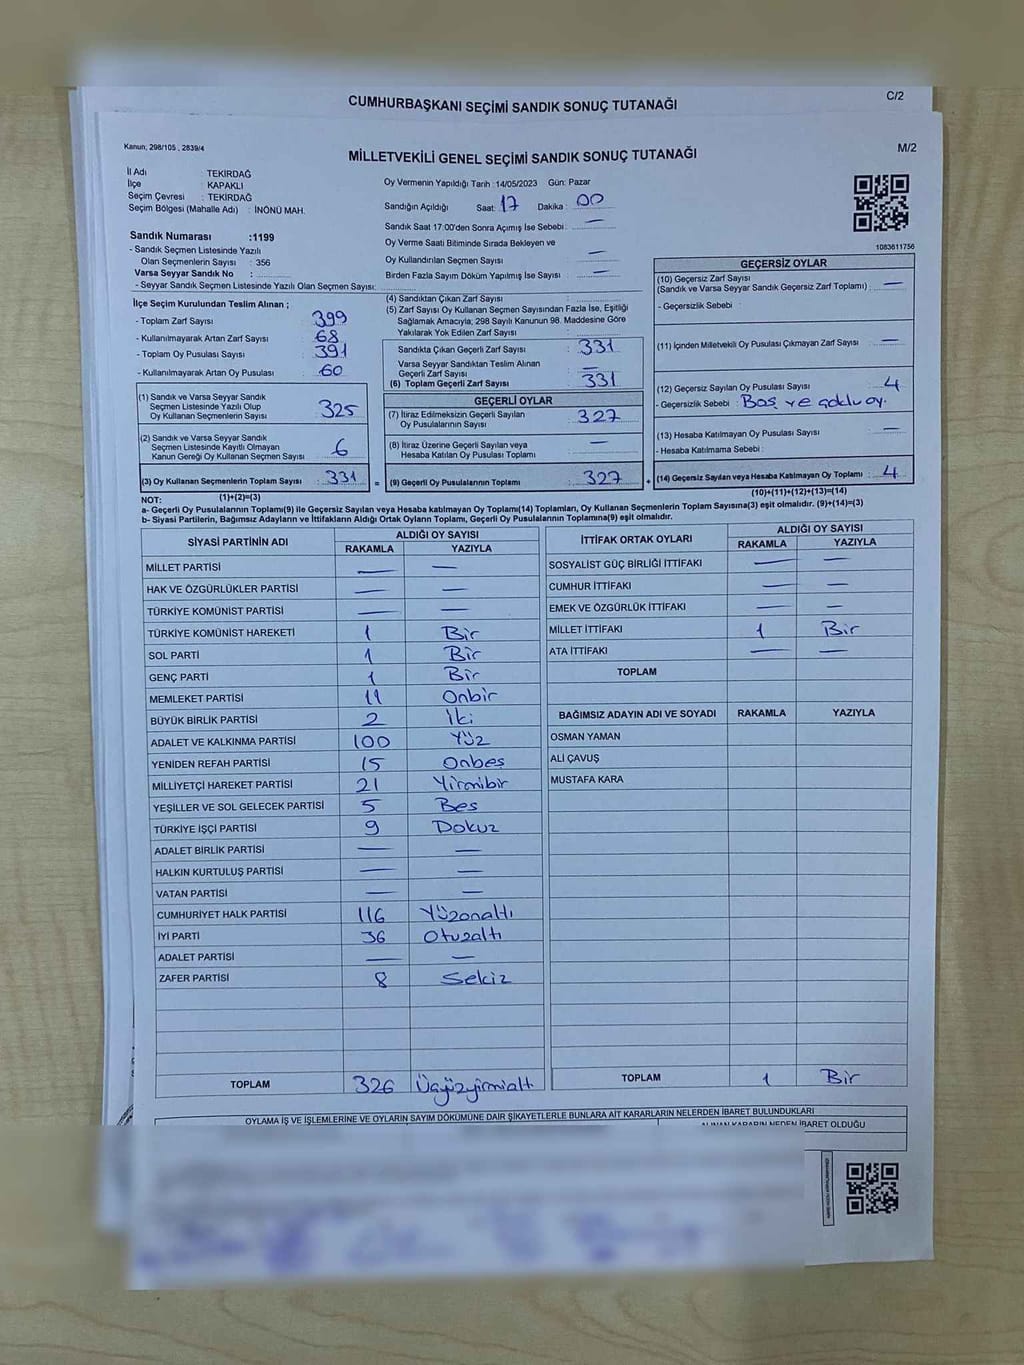 CUMHURBAŞKANI SEÇİMİ SANDIK SONUÇ TUTANAĞI
C/2
Kanun; 298/105 , 2839/4
MİLLETVEKİLİ GENEL SEÇİMİ SANDIK SONUÇ TUTANAĞI
M/2
İl Adı : TEKİRDAĞ
İlçe : KAPAKLI
Seçim Çevresi : TEKİRDAĞ
Seçim Bölgesi (Mahalle Adı) : İNÖNÜ MAH.
Sandık Numarası :1199
- Sandık Seçmen Listesinde Yazılı
Olan Seçmenlerin Sayısı : 356
Varsa Seyyar Sandık No :
- Seyyar Sandık Seçmen Listesinde Yazılı Olan Seçmen Sayısı:
Oy Vermenin Yapıldığı Tarih :14/05/2023 Gün: Pazar
Sandığın Açıldığı Saat: 17 Dakika : 00
Sandık Saat 17:00'den Sonra Açımış İse Sebebi : —
Oy Verme Saati Bitiminde Sırada Bekleyen ve
Oy Kullandırılan Seçmen Sayısı : —
Birden Fazla Sayım Döküm Yapılmış İse Sayısı : —
1083611756
İlçe Seçim Kurulundan Teslim Alınan ;
- Toplam Zarf Sayısı : 399
- Kullanılmayarak Artan Zarf Sayısı : 68
- Toplam Oy Pusulası Sayısı : 391
- Kullanılmayarak Artan Oy Pusulası : 60
(1) Sandık ve Varsa Seyyar Sandık
Seçmen Listesinde Yazılı Olup
Oy Kullanan Seçmenlerin Sayısı : 325
(2) Sandık ve Varsa Seyyar Sandık
Seçmen Listesinde Kayıtlı Olmayan
Kanun Gereği Oy Kullanan Seçmen Sayısı : 6
(3) Oy Kullanan Seçmenlerin Toplam Sayısı : 331
(1)+(2)=(3)
(4) Sandıktan Çıkan Zarf Sayısı :
(5) Zarf Sayısı Oy Kullanan Seçmen Sayısından Fazla İse, Eşitliği
Sağlamak Amacıyla; 298 Sayılı Kanunun 98. Maddesine Göre
Yakılarak Yok Edilen Zarf Sayısı :
Sandıkta Çıkan Geçerli Zarf Sayısı : 331
Varsa Seyyar Sandıktan Teslim Alınan
Geçerli Zarf Sayısı : —
(6) Toplam Geçerli Zarf Sayısı : 331
GEÇERLİ OYLAR
(7) İtiraz Edilmeksizin Geçerli Sayılan
Oy Pusulalarının Sayısı : 327
(8) İtiraz Üzerine Geçerli Sayılan veya
Hesaba Katılan Oy Pusulası Toplamı : —
= (9) Geçerli Oy Pusulalarının Toplamı : 327 +
GEÇERSİZ OYLAR
(10) Geçersiz Zarf Sayısı
(Sandık ve Varsa Seyyar Sandık Geçersiz Zarf Toplamı) : —
- Geçersizlik Sebebi :
(11) İçinden Milletvekili Oy Pusulası Çıkmayan Zarf Sayısı : —
(12) Geçersiz Sayılan Oy Pusulası Sayısı : 4
- Geçersizlik Sebebi : Boş ve çoklu oy.
(13) Hesaba Katılmayan Oy Pusulası Sayısı : —
- Hesaba Katılmama Sebebi :
(14) Geçersiz Sayılan veya Hesaba Katılmayan Oy Toplamı : 4
(10)+(11)+(12)+(13)=(14)
NOT:
a- Geçerli Oy Pusulalarının Toplamı(9) ile Geçersiz Sayılan veya Hesaba katılmayan Oy Toplamı(14) Toplamları, Oy Kullanan Seçmenlerin Toplam Sayısına(3) eşit olmalıdır. (9)+(14)=(3)
b- Siyasi Partilerin, Bağımsız Adayların ve İttifakların Aldığı Ortak Oyların Toplamı, Geçerli Oy Pusulalarının Toplamına(9) eşit olmalıdır.
SİYASİ PARTİNİN ADI ALDIĞI OY SAYISI
RAKAMLA YAZIYLA
MİLLET PARTİSİ — —
HAK VE ÖZGÜRLÜKLER PARTİSİ — —
TÜRKİYE KOMÜNİST PARTİSİ — —
TÜRKİYE KOMÜNİST HAREKETİ 1 Bir
SOL PARTİ 1 Bir
GENÇ PARTİ 1 Bir
MEMLEKET PARTİSİ 11 Onbir
BÜYÜK BİRLİK PARTİSİ 2 İki
ADALET VE KALKINMA PARTİSİ 100 Yüz
YENİDEN REFAH PARTİSİ 15 Onbeş
MİLLİYETÇİ HAREKET PARTİSİ 21 Yirmibir
YEŞİLLER VE SOL GELECEK PARTİSİ 5 Beş
TÜRKİYE İŞÇİ PARTİSİ 9 Dokuz
ADALET BİRLİK PARTİSİ — —
HALKIN KURTULUŞ PARTİSİ — —
VATAN PARTİSİ — —
CUMHURİYET HALK PARTİSİ 116 Yüzonaltı
İYİ PARTİ 36 Otuzaltı
ADALET PARTİSİ — —
ZAFER PARTİSİ 8 Sekiz
TOPLAM 326 Üçyüzyirmialtı
İTTİFAK ORTAK OYLARI ALDIĞI OY SAYISI
RAKAMLA YAZIYLA
SOSYALİST GÜÇ BİRLİĞİ İTTİFAKI — —
CUMHUR İTTİFAKI — —
EMEK VE ÖZGÜRLÜK İTTİFAKI — —
MİLLET İTTİFAKI 1 Bir
ATA İTTİFAKI — —
TOPLAM
BAĞIMSIZ ADAYIN ADI VE SOYADI RAKAMLA YAZIYLA
OSMAN YAMAN
ALİ ÇAVUŞ
MUSTAFA KARA
TOPLAM 1 Bir
OYLAMA İŞ VE İŞLEMLERİNE VE OYLARIN SAYIM DÖKÜMÜNE DAİR ŞİKAYETLERLE BUNLARA AİT KARARLARIN NELERDEN İBARET BULUNDUKLARI
ALINAN KARARIN NEDEN İBARET OLDUĞU